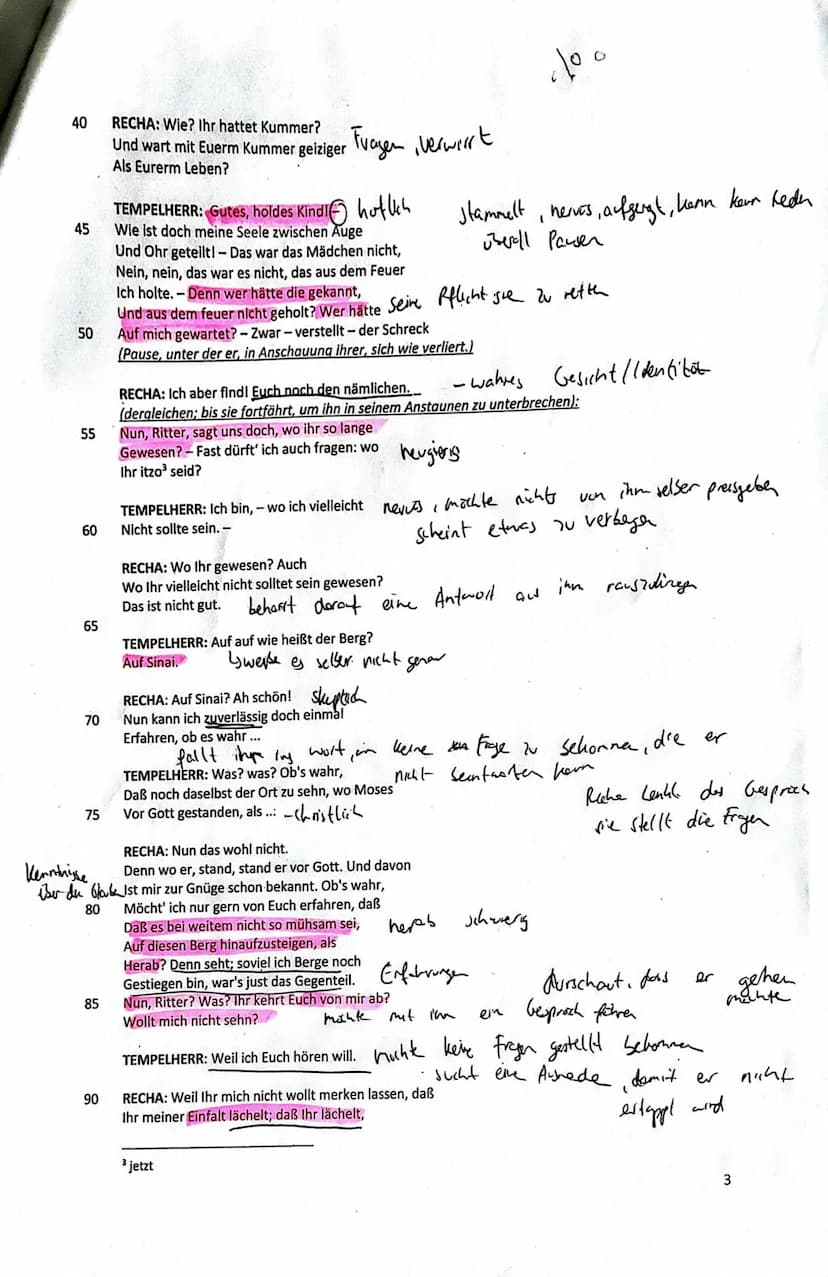 40 RECHA: Wie? Ihr hattet Kummer?
Und wart mit Euerm Kummer geiziger Fragen, verwirrt
Als Eurerm Leben?
TEMPELHERR: Gutes, holdes Kind!– höflich stammelt, nervös, aufgeregt, kann kein Reden
45 Wie ist doch meine Seele zwischen Auge überall Pausen
Und Ohr geteilt! – Das war das Mädchen nicht,
Nein, nein, das war es nicht, das aus dem Feuer
Ich holte. – Denn wer hätte die gekannt,
Und aus dem feuer nicht geholt? Wer hätte seine Pflicht sie zu retten
50 Auf mich gewartet? – Zwar – verstellt – der Schreck
(Pause, unter der er, in Anschauung ihrer, sich wie verliert.)
RECHA: Ich aber find! Euch noch den nämlichen. – wahres Gesicht/Identität
(dergleichen; bis sie fortfährt, um ihn in seinem Anstaunen zu unterbrechen):
55 Nun, Ritter, sagt uns doch, wo ihr so lange
Gewesen? – Fast dürft' ich auch fragen: wo neugierig
Ihr itzo³ seid?
TEMPELHERR: Ich bin, – wo ich vielleicht nervös, möchte nichts von ihm selber preisgeben
60 Nicht sollte sein. – scheint etwas zu verbergen
RECHA: Wo Ihr gewesen? Auch
Wo Ihr vielleicht nicht solltet sein gewesen?
Das ist nicht gut. beharrt darauf eine Antwort aus ihm
65
TEMPELHERR: Auf auf wie heißt der Berg?
Auf Sinai. weiß es selber nicht genau
RECHA: Auf Sinai? Ah schön! skeptisch
70 Nun kann ich zuverlässig doch einmal
Erfahren, ob es wahr ...
fällt ihm ins Wort, um keine Frage zu, die er
TEMPELHERR: Was? was? Ob's wahr, nicht beantworten kann
Daß noch daselbst der Ort zu sehn, wo Moses Recha lenkt das Gespräch
75 Vor Gott gestanden, als ..: – Christlich sie stellt die Fragen
RECHA: Nun das wohl nicht.
Kenntnisse Denn wo er, stand, stand er vor Gott. Und davon
über den Glauben Ist mir zur Gnüge schon bekannt. Ob's wahr,
80 Möcht' ich nur gern von Euch erfahren, daß
Daß es bei weitem nicht so mühsam sei, herab schwierig
Auf diesen Berg hinaufzusteigen, als
Herab? Denn seht; soviel ich Berge noch
Gestiegen bin, war's just das Gegenteil. Erfahrungen durschaut, dass er gehen möchte
85 Nun, Ritter? Was? Ihr kehrt Euch von mir ab?
Wollt mich nicht sehn? möchte mit ihm ein Gespräch führen
TEMPELHERR: Weil ich Euch hören will. möchte keine Fragen gestellt bekommen
sucht eine Ausrede, damit er nicht
90 RECHA: Weil Ihr mich nicht wollt merken lassen, daß ertappt wird
Ihr meiner Einfalt lächelt; daß Ihr lächelt,
³ jetzt
3